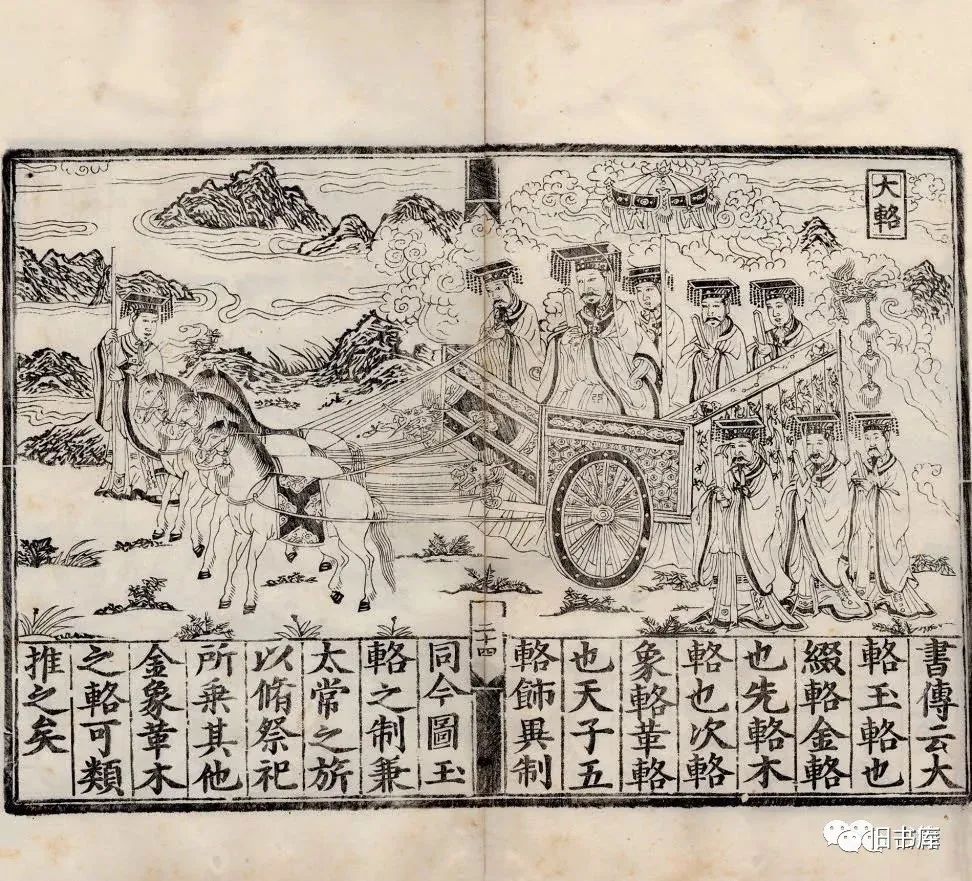 大輅
書傳云大
輅玉輅也
綴輅金輅
也先輅木
輅也次輅
象輅革輅
也天子五
輅飾異制
二十四
同今圖玉
輅之制兼
太常之旂
以脩祭祀
所乗其他
金象革木
之輅可類
推之矣
旧书库